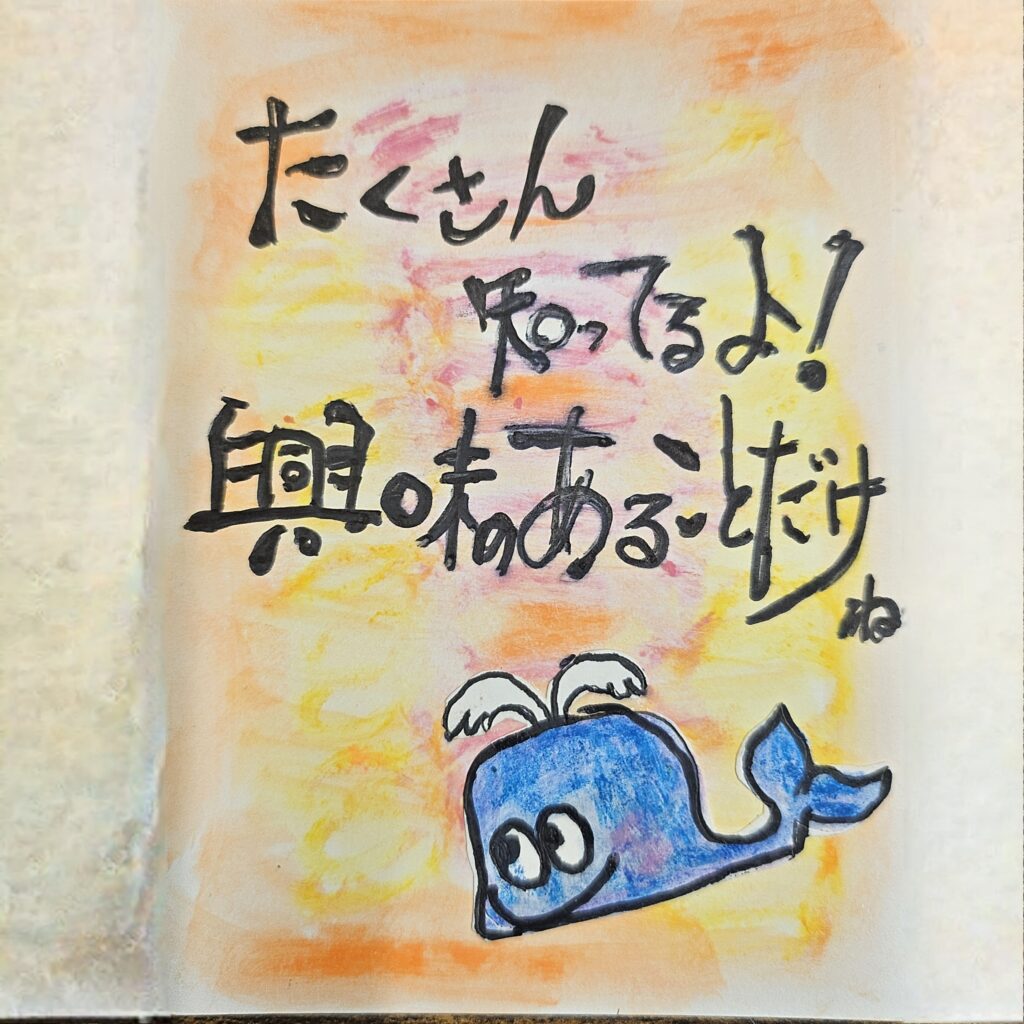 たくさん
知ってるよ!
興味のあることだけ
ね